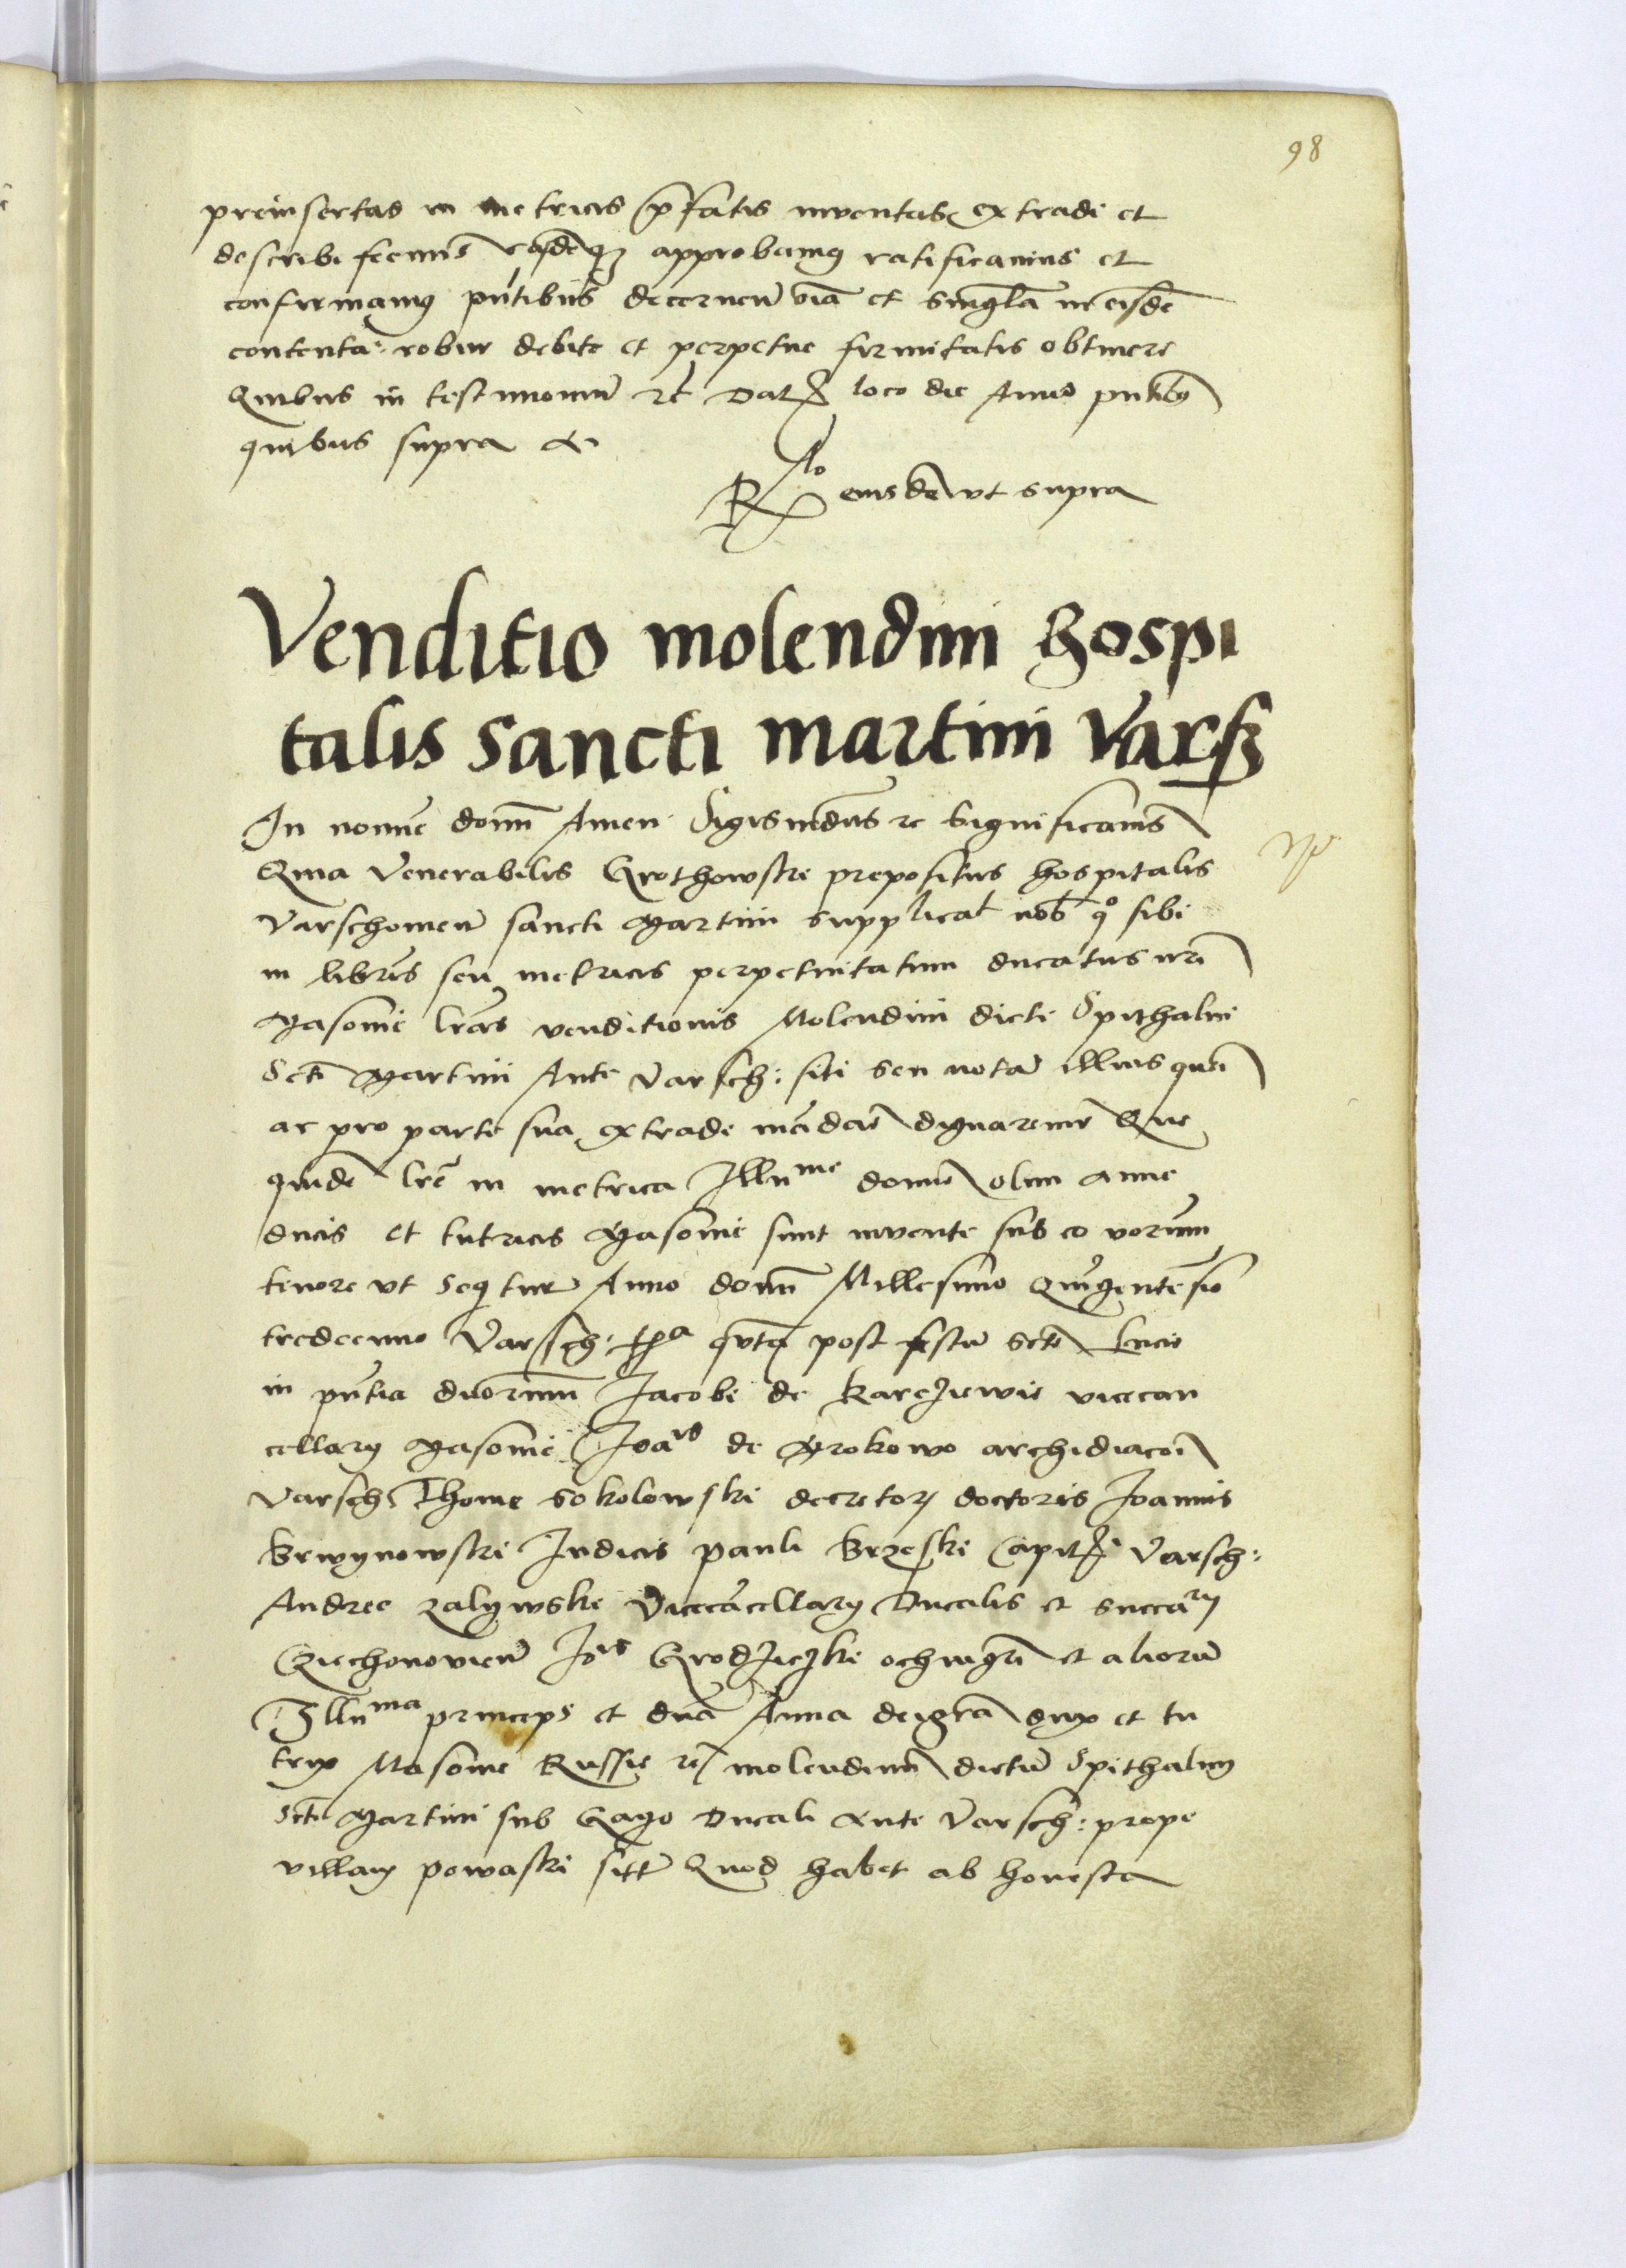 98
preinsertas in metricis prefatis inventas extradi et
describi fecimus easdemq3 approbamus ratificamus et
confirmamus pntibus decernen oia et singla in eisdem
contenta robur debite et perpetue firmitatis obtinere
Quibus in testimonium rc Dat loco die Anno pntibus
quibus supra &
Rlo eiusdem ut supra
Venditio molendini hospi
talis Sancti martini Varsz
In nomine domi Amen Sigismudus rc Significamus
Quia Venerabilis Grothowski prepositus hospitalis
Varschovien sancti Martini supplicat nob qo sibi
in libris seu metricis perpetuitatum ducatus nri
Masovie lras venditionis Molendini dicti Spithalni
Scti Martini Ante Varsch: siti seu nota illius
ac pro parte sua extradi mandare dignaremur Que
quide lre in metrica Illume domine olim Anne
ducis et tutricis Masovie sunt invente sub eo
tenore ut seqtur Anno domi Millesimo Quigentesimo
tredecimo Varsch: fra qvta post festu scte Lucie
in pntia dnorum Jacobi de Karczewie vicecan
cellary Masovie Joais de Mrokowo archidiaconi
Varsch Thome Sokolowski decretor doctoris Joannis
Brwynowski Judicis pauli Brzeski Capit Varsch:
Andree Zalywske Vicecacellary Ducalis et succary
Cziechonovien Jois Grodziczke et aliorum
Illuma princeps et dna Anna dei gra dux et tu
trix Masovie Russie rc molendinum dictum Spithalny
Scti Martini sub Gayo Ducali Ante Varsch: prope
villam powaski situ Quod habet ab honesta